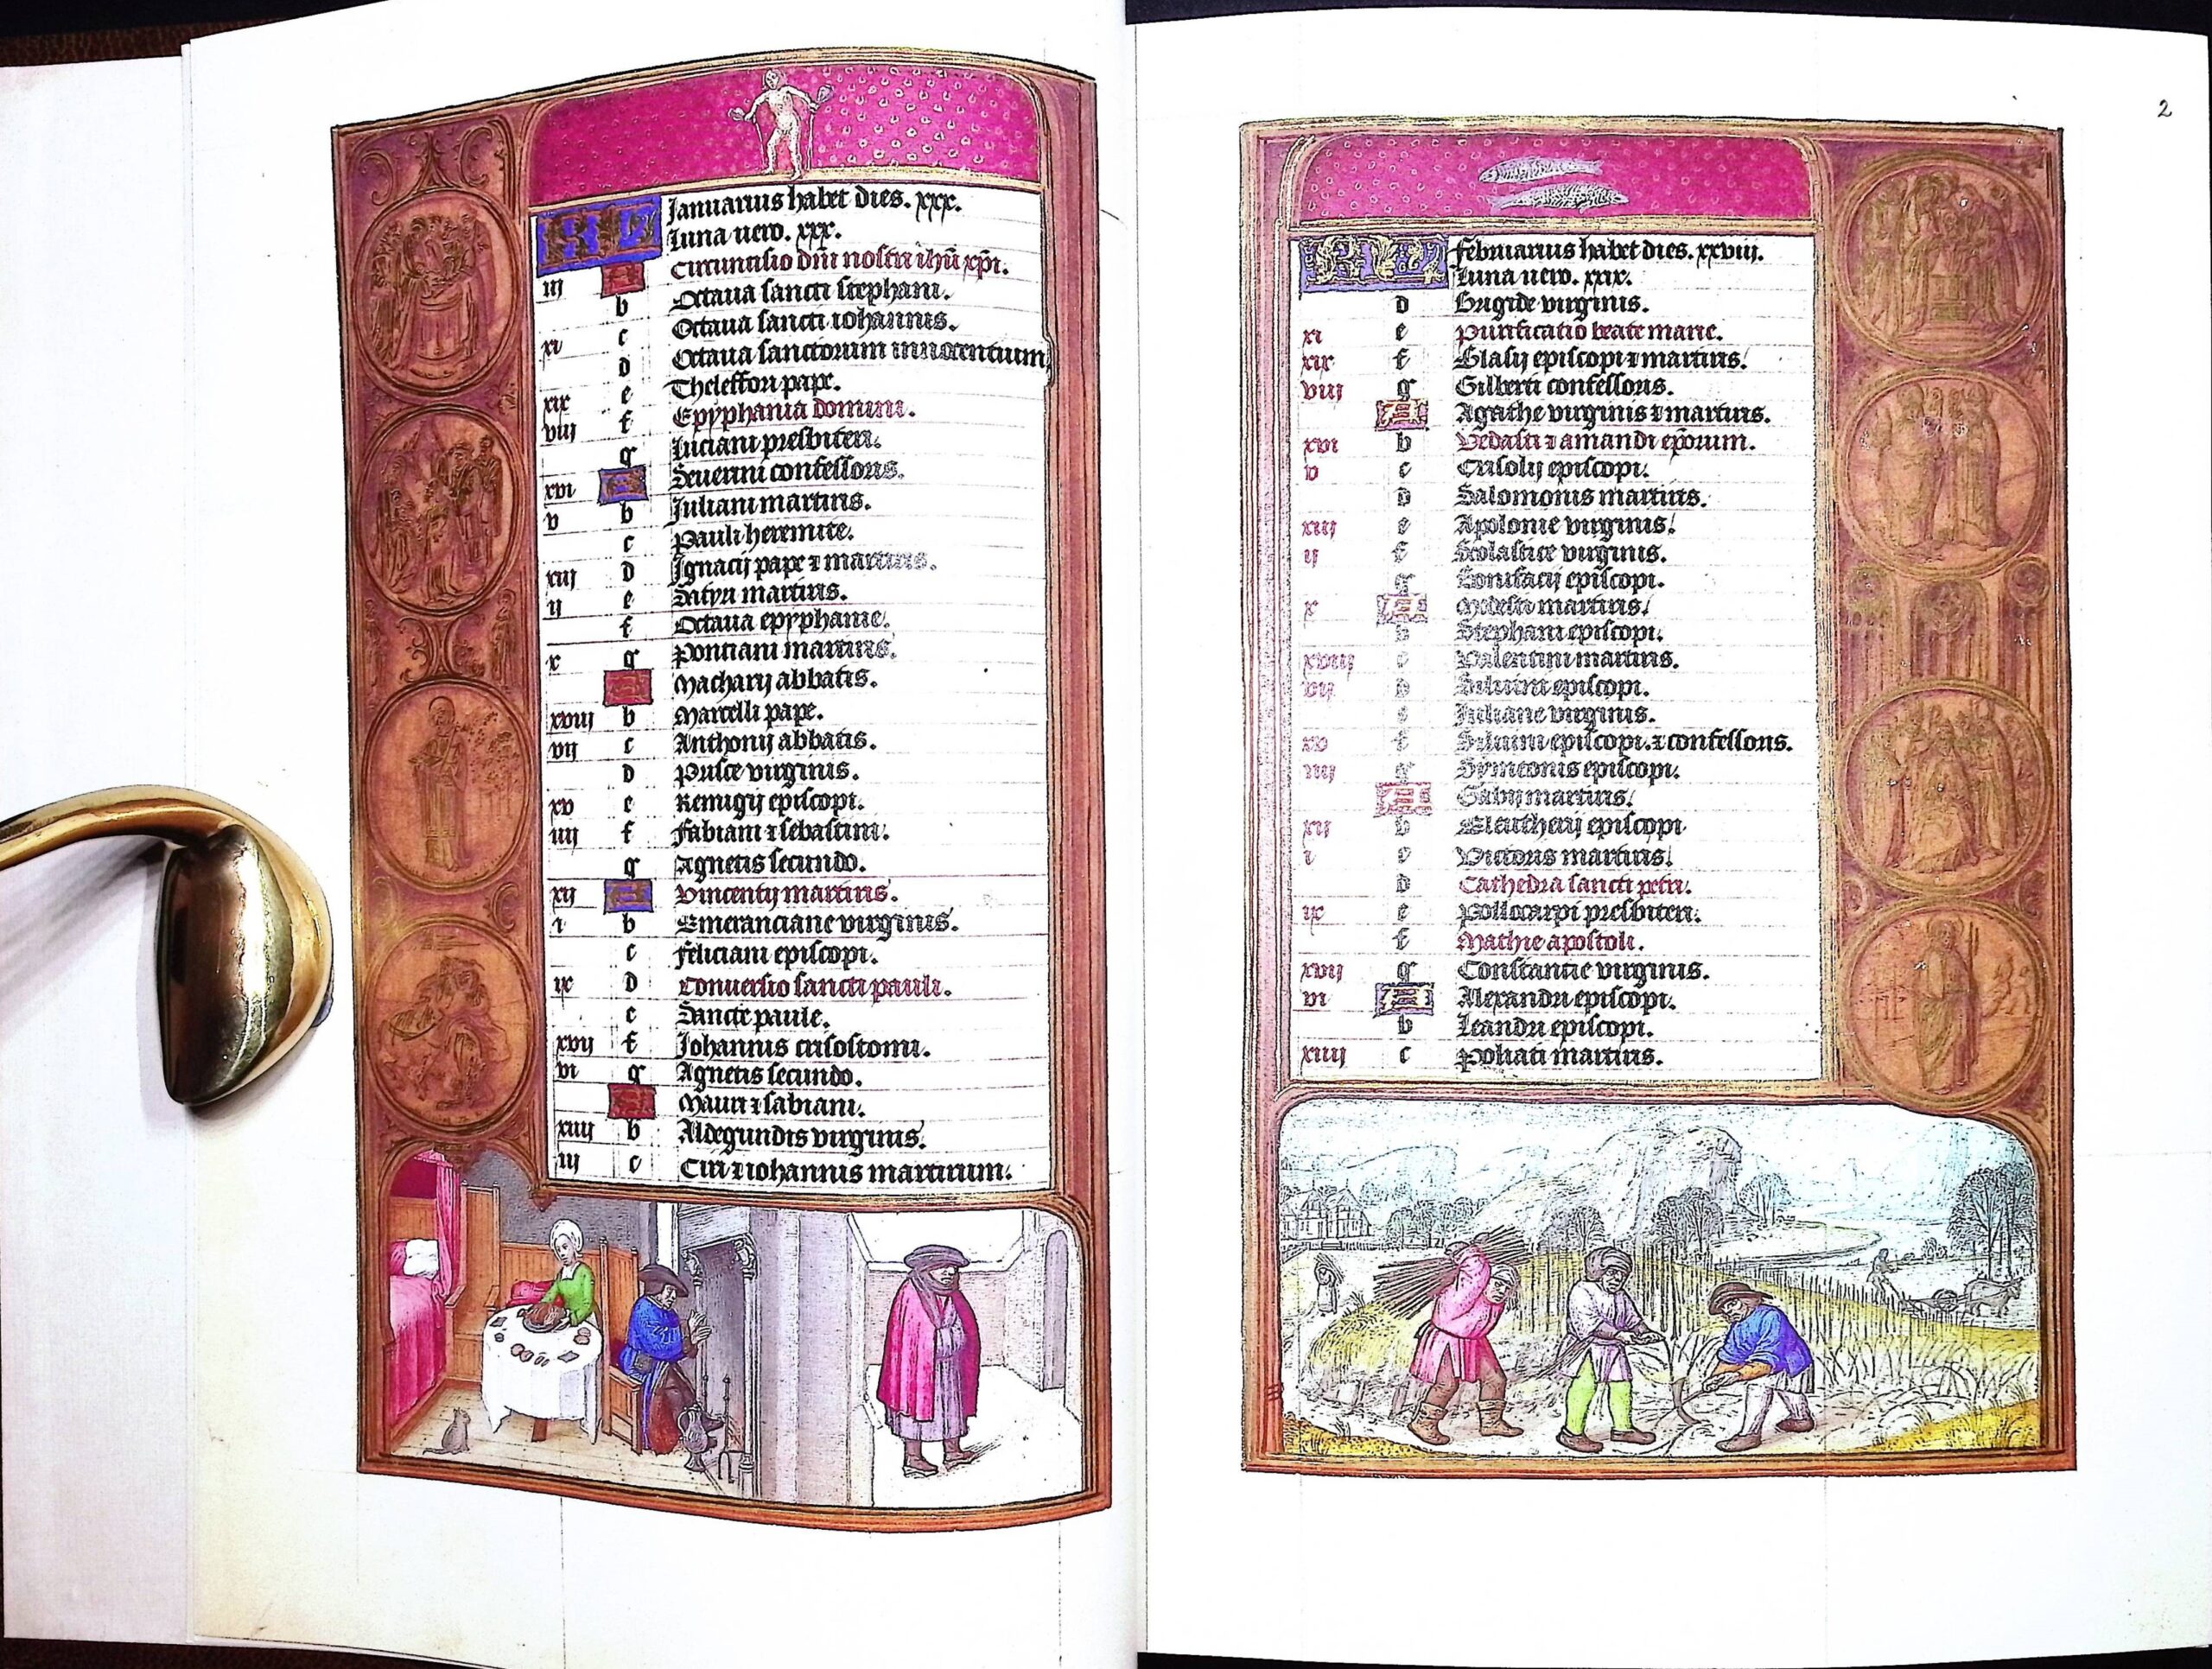 KL Januarius habet dies. xxx.
Luna uero. xxx.
iij A Circuncisio dni nostri ihu xpi.
b Octaua sancti stephani.
xi c Octaua sancti iohannis.
d Octaua sanctorum innocentium
xix e Theleffori pape.
viij f Epyphania domini.
g Luciani presbiteri.
xvi A Seuerini confessoris.
v b Juliani martiris.
c Pauli heremite.
xiij d Ignacij pape ⁊ martiris.
ij e Satyri martiris.
f Octaua epyphanie.
x g Pontiani martiris.
A Macharij abbatis.
xviij b Marcelli pape.
vij c Anthonij abbatis.
d Prisce virginis.
xv e Remigij episcopi.
iiij f Fabiani ⁊ sebastini.
g Agnetis secundo.
xij A Vincentij martiris.
i b Emeranciane virginis.
c Feliciani episcopi.
ix d Conuersio sancti pauli.
e Sancte paule.
xvij f Johannis crisostomi.
vi g Agnetis secundo.
A Mauri ⁊ sabiani.
xiiij b Aldegundis virginis.
iij c Ciri ⁊ iohannis martirum.
2
KL Februarius habet dies. xxviij.
Luna uero. xxix.
d Brigide virginis.
xi e Purificatio beate marie.
xix f Blasij episcopi ⁊ martiris.
viij g Gilberti confessoris.
A Agathe virginis ⁊ martiris.
xvi b Vedasti ⁊ amandi eporum.
v c Crisolij episcopi.
d Salomonis martiris.
xiij e Apolonie virginis.
ij f Scolastice virginis.
g Bonifacij episcopi.
x A Modesti martiris.
b Stephani episcopi.
xviij c Valentini martiris.
vij d Siluini episcopi.
e Juliane virginis.
xv f Siluini episcopi. ⁊ confessoris.
iiij g Symeonis episcopi.
A Gabij martiris.
xij b Eleutherij episcopi
i c Victoris martiris.
d Cathedra sancti petri.
ix e Pollocarpi presbiteri.
f Mathie apostoli.
xvij g Constancie virginis.
vi A Alexandri episcopi.
b Leandri episcopi.
xiiij c Poliati martiris.